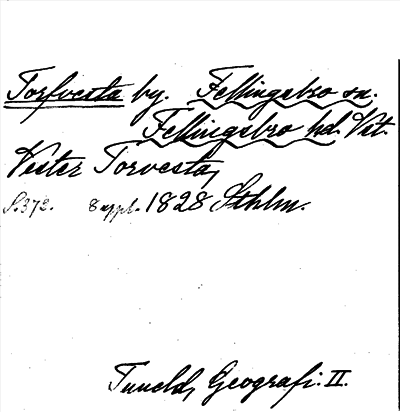 Torfvesta by. Fellingsbro sn.
Fellingsbro hd. Vstm.
Vester Torvesta,
S. 372. 8 uppl. 1828 Sthlm.
Tuneld, Geografi. II.